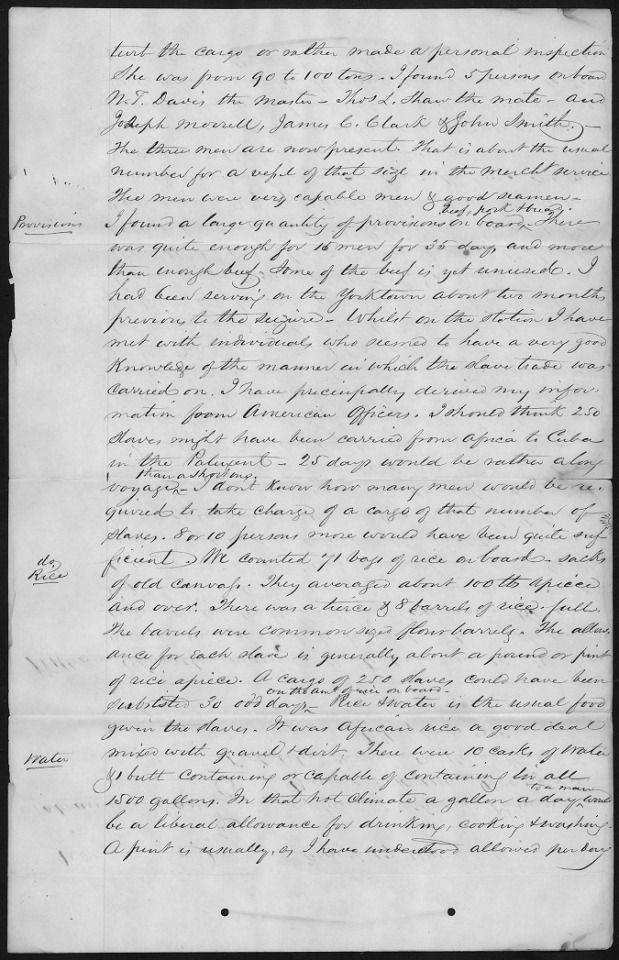 turb the cargo or rather made a personal inspection
She was from 90 to 100 tons - I found 5 persons on board
N.T. Davis the master - Thos L. Shaw the mate - and
Joseph Morrell, James C. Clark & John Smith. -
The three men are now present. That is about the usual
number for a vessel of that size in the mercht service
The men were very capable men & good seamen -
beef, pork & bread.
Provisions
I found a large quantity of provisions on board, There
was quite enough for 15 men for 35 days and more
than enough beef. Some of the beef is yet unused. I
had been serving on the Yorktown about two months
previous to the seizure - Whilst on the station I have
met with individuals who seemed to have a very good
knowledge of the manner in which the slave trade was
carried on. I have principally derived my infor-
mation from American Officers. I should think 250
slaves might have been carried from Africa to Cuba
in the Patuxent - 25 days would be rather a long
than a short one.
voyage, - I dont know how many men would be re-
quired to take charge of a cargo of that number of
slaves. 8 or 10 persons more would have been quite suf-
do
Rice
ficient. We counted 71 bags of rice on board - sacks
of old canvass. They averaged about 100 lbs apiece
and over. There was a tierce & 8 barrels of rice - full.
The barrels were common sized flour barrels. The allow-
ance for each slave is generally about a pound or pint
of rice apiece. A cargo of 250 slaves could have been
on the amt of rice on board -
subsisted 30 odd days - Rice & water is the usual food
given the slaves. It was African rice a good deal
mixed with gravel & dirt. There were 10 casks of water
Water
& 1 butt containing or capable of containing in all
to a man
1500 gallons. In that hot climate a gallon a day, would
be a liberal allowance for drinking, cooking & washing.
A pint is usually, as I have understood allowed per day